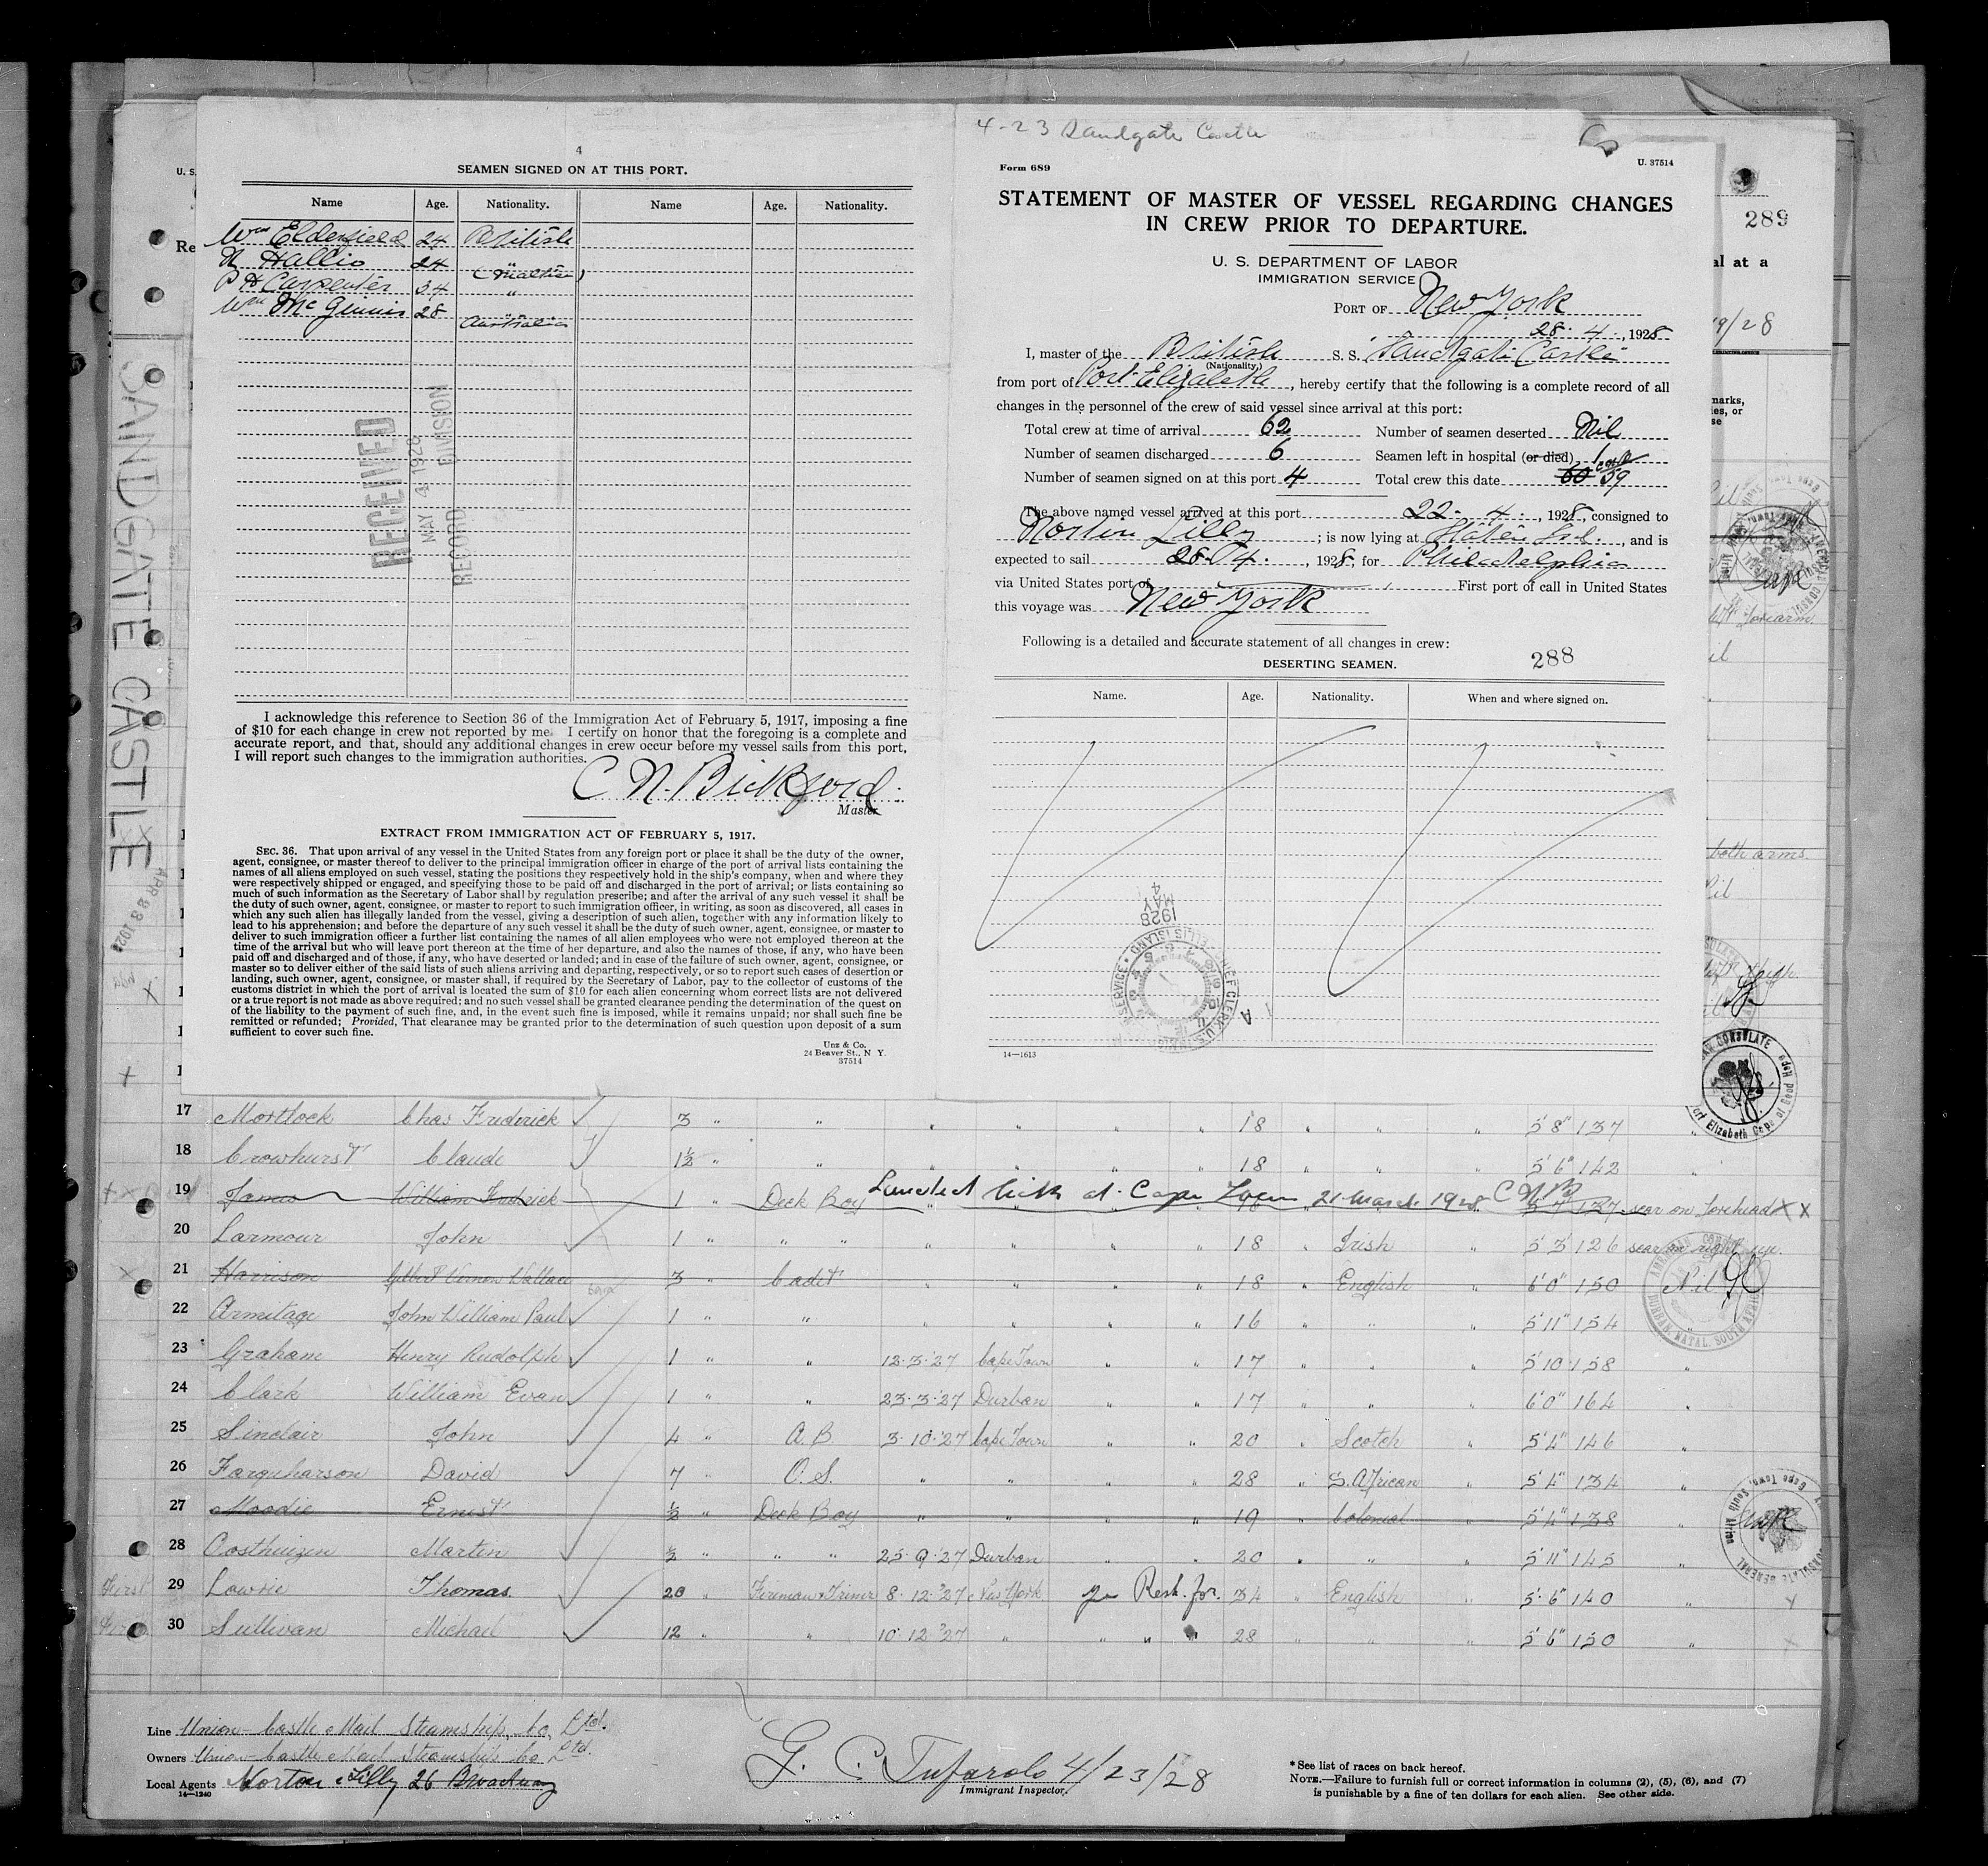 4-23 Sandgate Castle
4
SEAMEN SIGNED ON AT THIS PORT.
Name Age. Nationality. Name Age. Nationality.
Wm Elderfield 24 British
N Hallio 24 " (Maltese)
P H Carpenter 34 "
Wm McGinnis 28 " Australia
RECEIVED
MAY 4 1928
RECORD DIVISION
I acknowledge this reference to Section 36 of the Immigration Act of February 5, 1917, imposing a fine
of $10 for each change in crew not reported by me. I certify on honor that the foregoing is a complete and
accurate report, and that, should any additional changes in crew occur before my vessel sails from this port,
I will report such changes to the immigration authorities.
C N. Bickford.
Master
EXTRACT FROM IMMIGRATION ACT OF FEBRUARY 5, 1917.
SEC. 36. That upon arrival of any vessel in the United States from any foreign port or place it shall be the duty of the owner,
agent, consignee, or master thereof to deliver to the principal immigration officer in charge of the port of arrival lists containing the
names of all aliens employed on such vessel, stating the positions they respectively hold in the ship's company, when and where they
were respectively shipped or engaged, and specifying those to be paid off and discharged in the port of arrival; or lists containing so
much of such information as the Secretary of Labor shall by regulation prescribe; and after the arrival of any such vessel it shall be
the duty of such owner, agent, consignee, or master to report to such immigration officer, in writing, as soon as discovered, all cases in
which any such alien has illegally landed from the vessel, giving a description of such alien, together with any information likely to
lead to his apprehension; and before the departure of any such vessel it shall be the duty of such owner, agent, consignee, or master to
deliver to such immigration officer a further list containing the names of all alien employees who were not employed thereon at the
time of the arrival but who will leave port thereon at the time of her departure, and also the names of those, if any, who have been
paid off and discharged and of those, if any, who have deserted or landed; and in case of the failure of such owner, agent, consignee, or
master so to deliver either of the said lists of such aliens arriving and departing, respectively, or so to report such cases of desertion or
landing, such owner, agent, consignee, or master shall, if required by the Secretary of Labor, pay to the collector of customs of the
customs district in which the port of arrival is located the sum of $10 for each alien concerning whom correct lists are not delivered
or a true report is not made as above required; and no such vessel shall be granted clearance pending the determination of the quest on
of the liability to the payment of such fine, and, in the event such fine is imposed, while it remains unpaid; nor shall such fine be
remitted or refunded; Provided, That clearance may be granted prior to the determination of such question upon deposit of a sum
sufficient to cover such fine.
Unz & Co.
24 Beaver St., N Y.
37514
Form 689
U. 37514
STATEMENT OF MASTER OF VESSEL REGARDING CHANGES
IN CREW PRIOR TO DEPARTURE.
U. S. DEPARTMENT OF LABOR
IMMIGRATION SERVICE
PORT OF New York
28. 4., 1928
I, master of the British S. S. Sandgate Castle
(Nationality)
from port of Port Elizabeth, hereby certify that the following is a complete record of all
changes in the personnel of the crew of said vessel since arrival at this port:
Total crew at time of arrival 62 Number of seamen deserted Nil
Number of seamen discharged 6 Seamen left in hospital (or died) 1
Number of seamen signed on at this port 4 Total crew this date 60 59
The above named vessel arrived at this port 22. 4., 1928, consigned to
Norton Lilly; is now lying at Staten Isd., and is
expected to sail 28. 4., 1928, for Philadelphia
via United States port of First port of call in United States
this voyage was New York
Following is a detailed and accurate statement of all changes in crew:
DESERTING SEAMEN. 288
Name. Age. Nationality. When and where signed on.
MAY 4 1928
14—1613
U. S.
Re
289
al at a
19/28
marks,
ies, or
se
forearm
both arms.
SANDGATE CASTLE
APR 23 1928
17 Mortlock Chas Frederick 3 " " " " " " 18 " " " 5' 8" 137 "
18 Crowhurst Claude 1½ " " " " " " 18 " " " 5' 6" 142 "
19 James William Fredrick 1 " Deck Boy Landed sick at Cape Town 21 March 1928. C N B 18 5' 7" 137 scar on Forehead X X
20 Larmour John 1 " " " " " " " 18 " Irish " 5' 3" 126 scar on right eye.
21 Harrison Gilbert Vernon Wallace 3 " Cadet " " " " 18 " English " 6' 0" 150 Nil
22 Armitage John William Paul 1 " " " " " " 16 " " " 5' 11" 154
23 Graham Henry Rudolph 1 " " 12.3.'27 Cape Town " " 17 " " " 5' 10 158 "
24 Clark William Evan 1 " " 23.3.'27 Durban " " 17 " " " 6' 0" 164 "
25 Sinclair John 4 " A.B 3.10.'27 Cape Town " " 20 " Scotch " 5' 4" 146 "
26 Farquharson David 7 " O.S. " " " " 28 " S. African " 5' 4" 134 "
27 Moodie Ernest ½ " Deck Boy " " " " 19 " Colonial " 5' 4" 138 "
28 Oosthuizen Marten ½ " " " 25.9.'27 Durban " " 20 " " " 5' 11" 145 "
First 29 Lowrie Thomas. 20 " Fireman & Trimr 8.12.'27 New York Resh. for. 34 " English " 5' 6" 140 "
30 Sullivan Michael 12 " " 10.12.'27 " " " " 28 " " " 5' 6" 150 "
Line Union-Castle Mail Steamship, Co, Ltd.
Owners Union-Castle Mail Steamship Co Ltd.
Local Agents Norton Lilly 26 Broadway
14—1240
G. C. Tufarolo 4/23/28
Immigrant Inspector.
* See list of races on back hereof.
NOTE.—Failure to furnish full or correct information in columns (2), (5), (6), and (7)
is punishable by a fine of ten dollars for each alien. See other side.